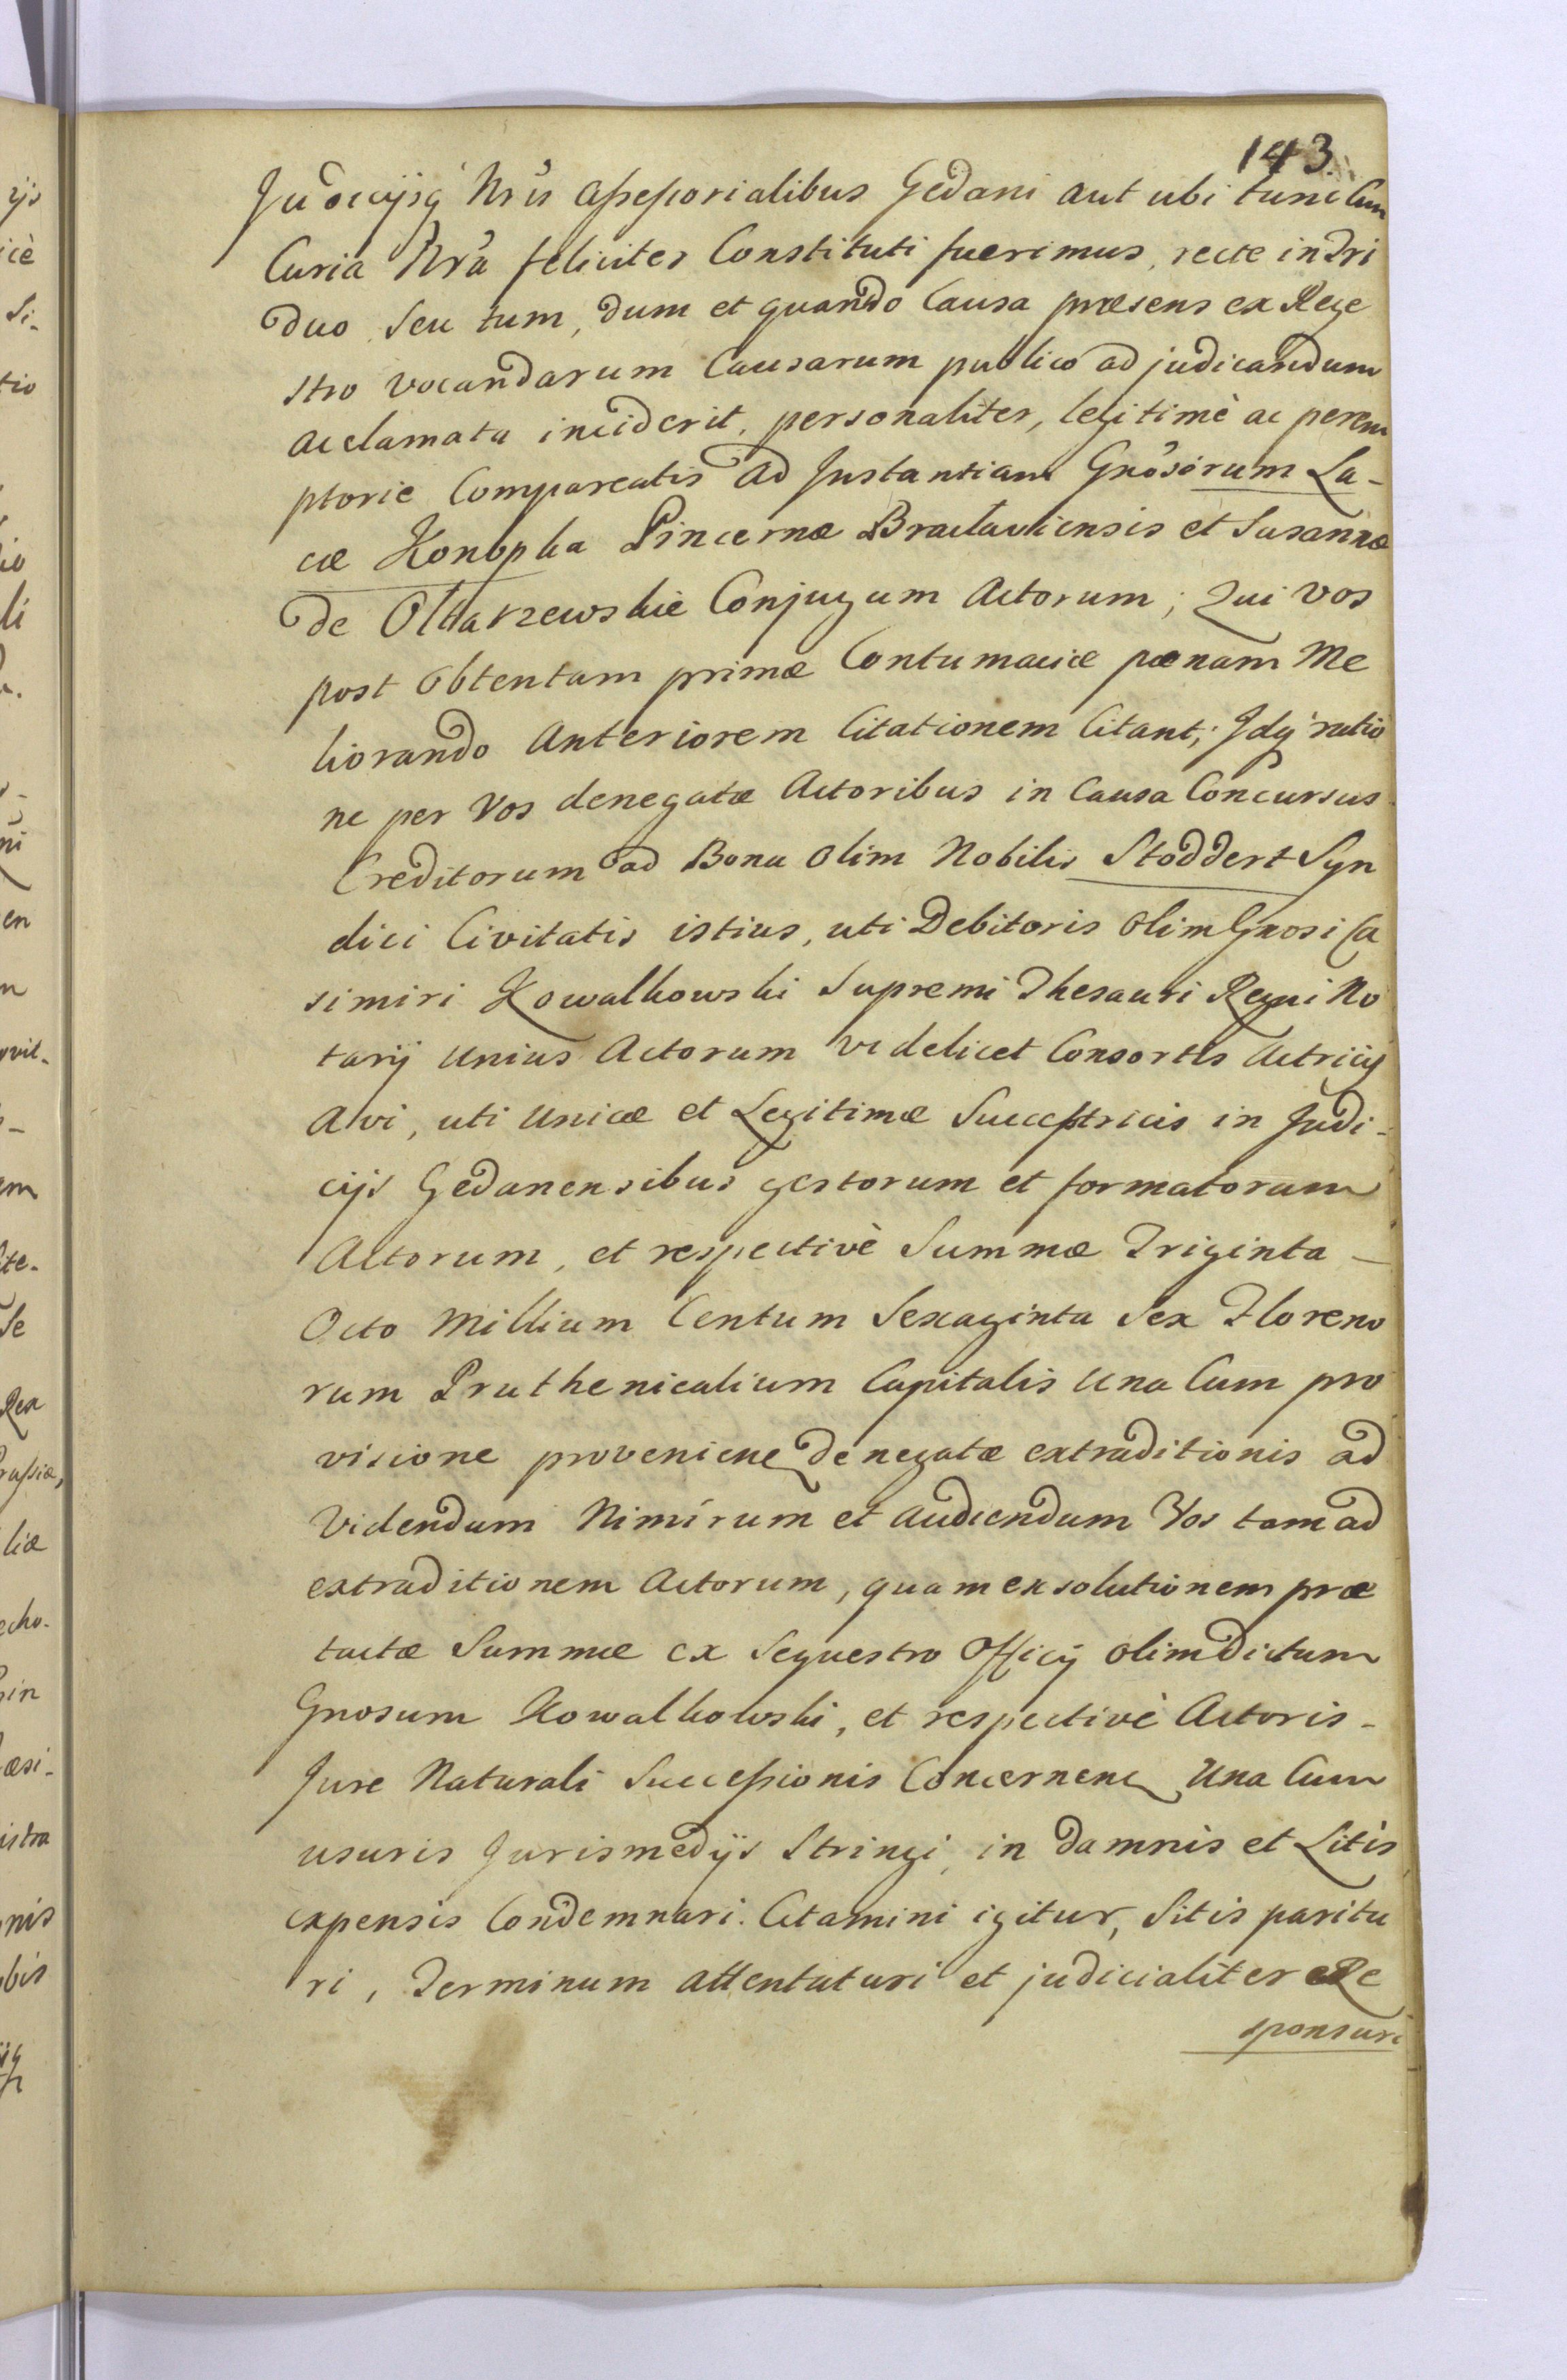 143.
Judicijsq́ Nris Assessorialibus Gedani aut ubi tunc Cum
Curia Nra feliciter Constituti fuerimus, recte in Tri
duo seu tum, dum et quando Causa præsens ex Rege
stro vocandarum Causarum publico ad judicandum
acclamata inciderit, personaliter, legitimè ac perem
ptorie Compareatis ad Instantiam Gnosorum La-
cæ Konopka Pincernæ Braclaviensis et Susannæ
de Ołtarzewskie Conjugum Actorum; Qui vos
post obtentam primæ Contumaciæ pœnam Me
liorando Anteriorem Citationem Citant; Idq́ ratio
ne per Vos denegatæ Actoribus in Causa Concursus
Creditorum ad Bona olim Nobilis Stoddert Syn
dici Civitatis istius, uti Debitoris olim Gnosi Ca
simiri Kowalkowski Supremi Thesauri Regni No
tarij unius Actorum videlicet Consortis Actricis
Avi, uti unicæ et Legitimæ Successtricis in Judi-
cijs Gedanensibus gestorum et formatorum
Actorum, et respectivè Summæ Triginta
Octo Millium Centum Sexaginta Sex Floreno
rum Pruthenicalium Capitalis una Cum pro
visione provenien denegatæ extraditionis ad
Videndum Nimirum et audiendum Vos tam ad
extraditionem Actorum, quam exsolutionem præ
tactæ Summæ ex Sequestro Officij olim dictum
Gnosum Kowalkowski, et respectivè Actoris-
Jure Naturali Successionis Concernen una Cum
usuris Jurismedijs Stringi, in damnis et Litis
expensis Condemnari. Citamini igitur, Sitis paritu
ri, Terminum attentaturi et judicialiter Re
sponsuri